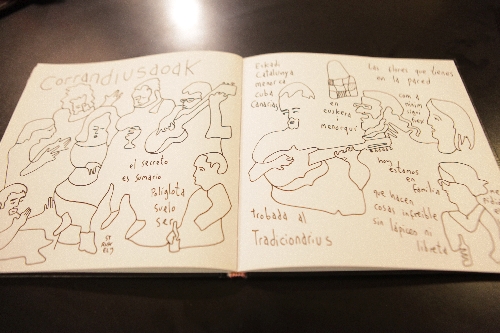 corrandiusaoak
el secreto
es sumario
Políglota
suelo
ser
Euskadi
Catalunya
menorca
cuba
Canarias
en
euskera
menorquí
Las flores que tienes
en la pared
com a
mínim
hoy
estamos
en
Familia
que hacen
cosas increíble
sin lápices ni
libreta
trobada al
Tradicionàrius